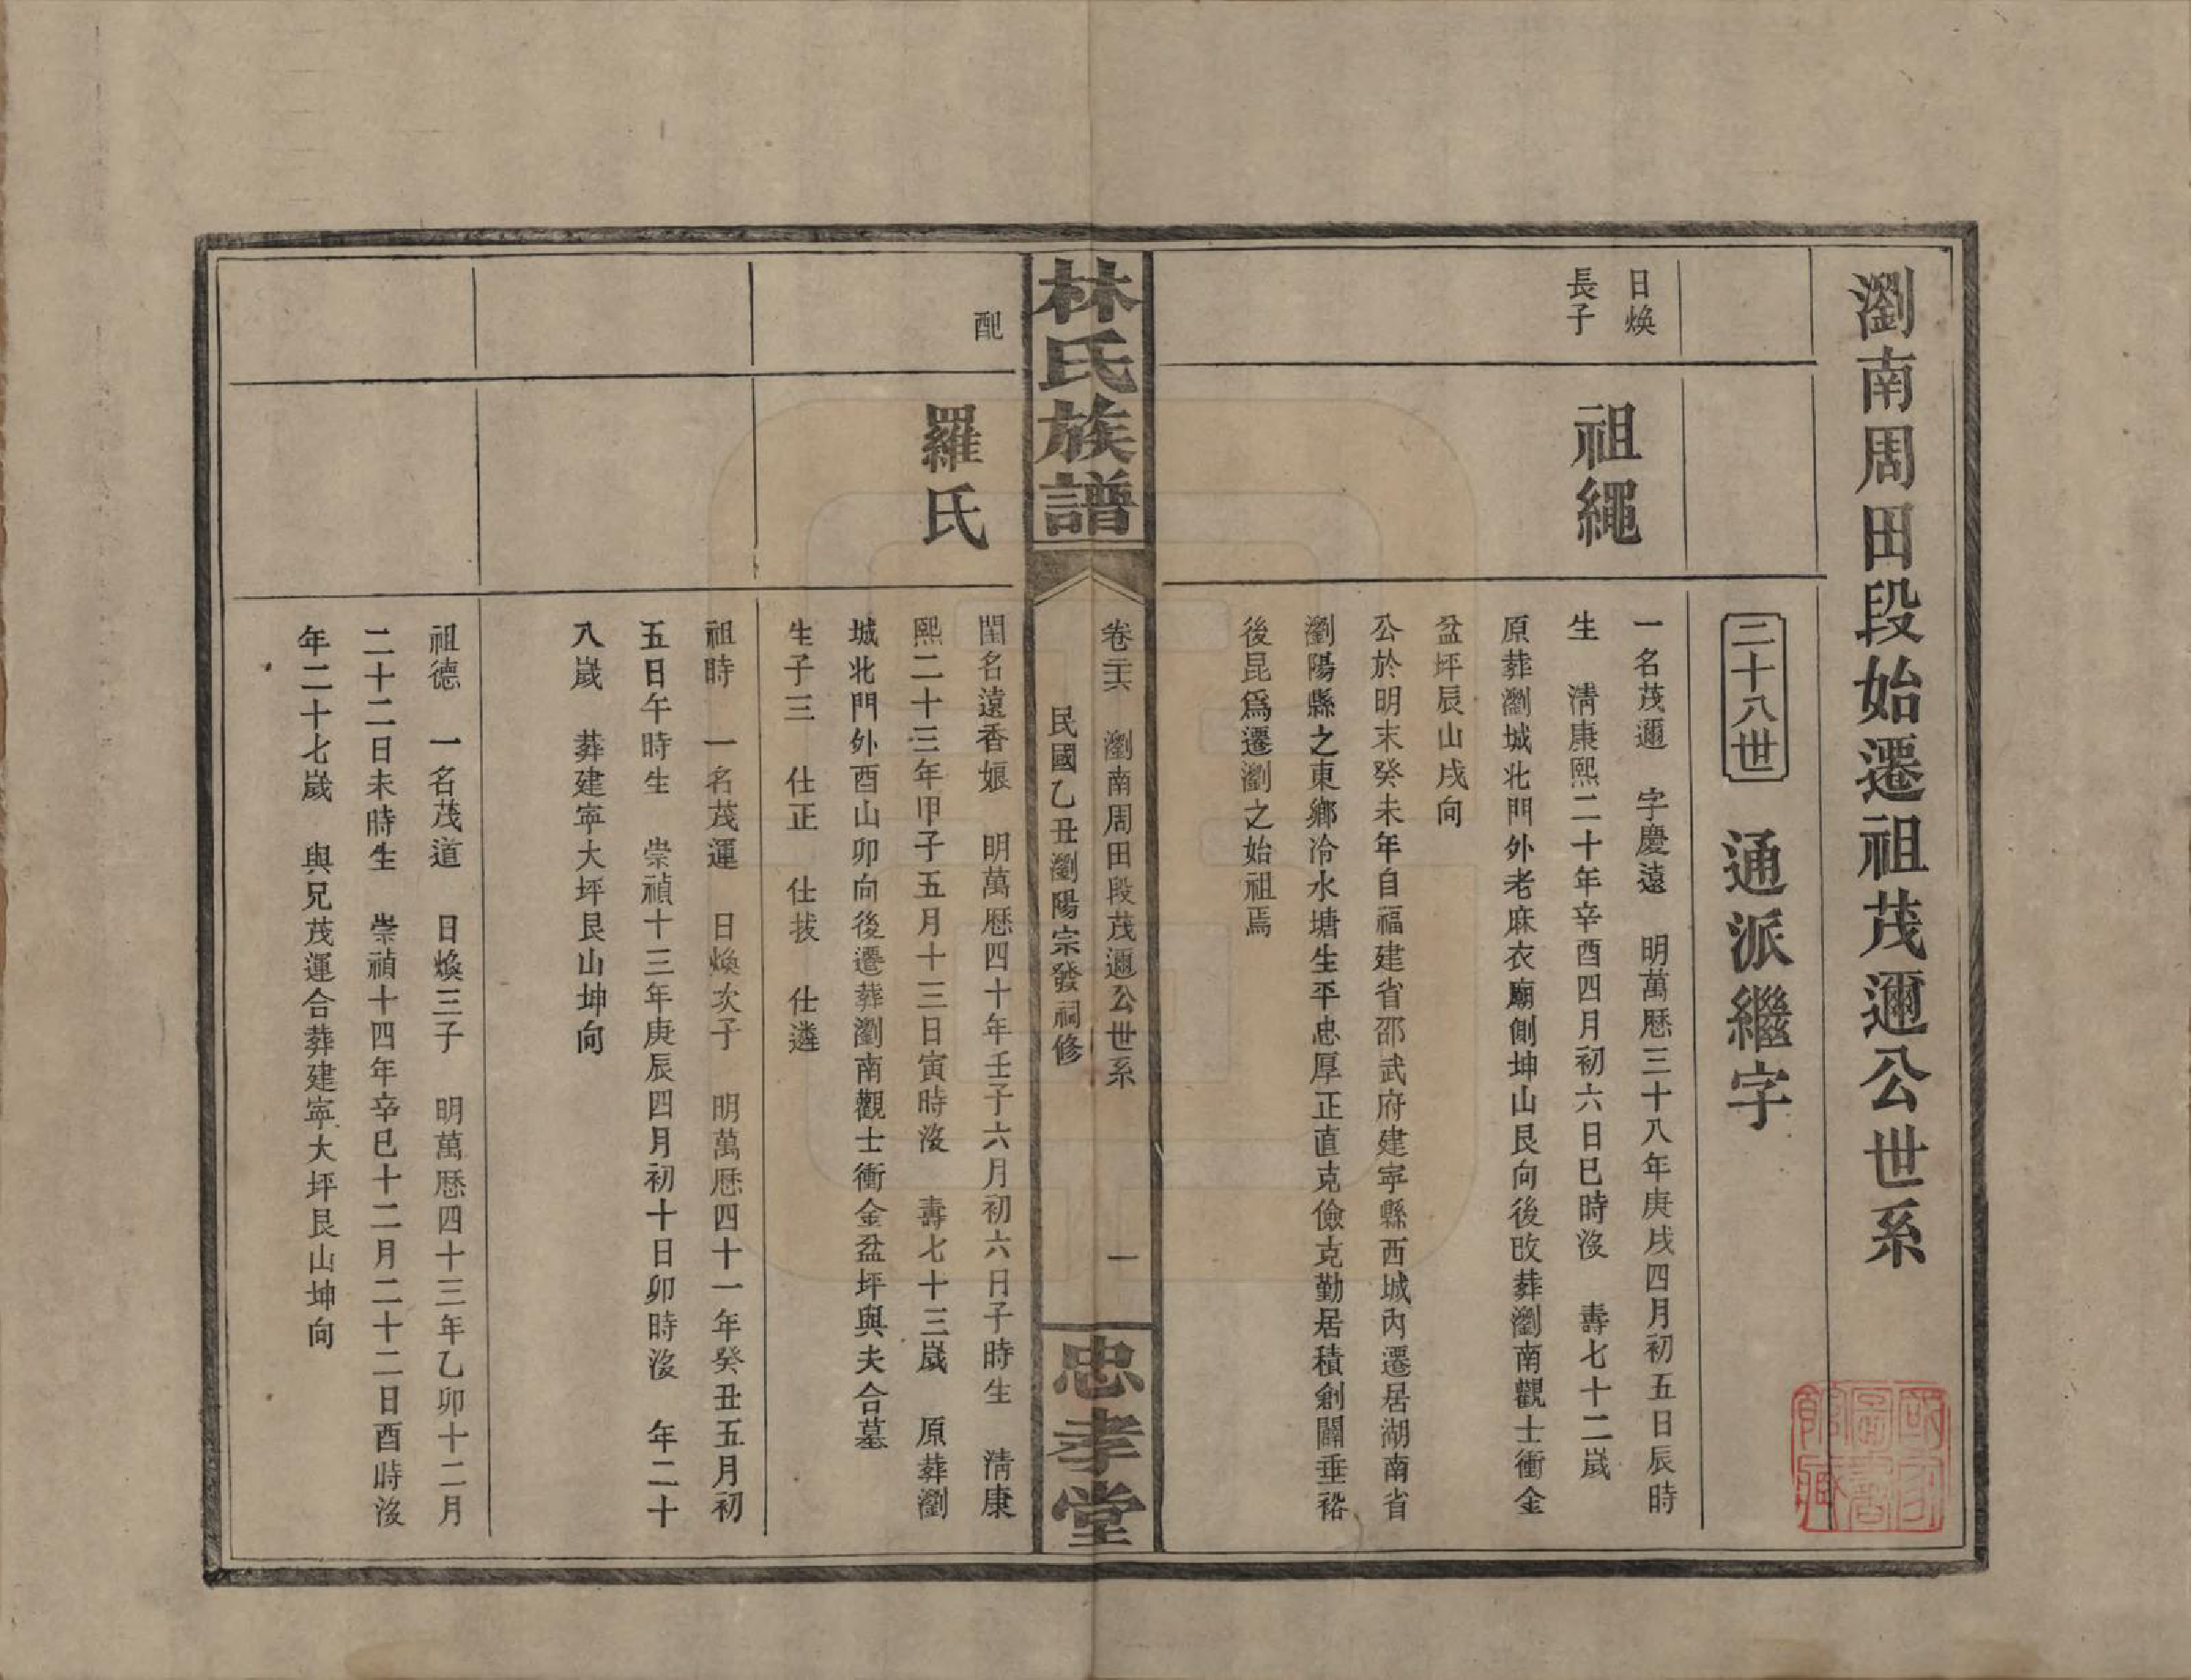 瀏南周田段始遷祖茂邇公世系
二十八世 通派繼字
日煥
長子
祖繩
一名茂邇 字慶遠 明萬歷三十八年庚戌四月初五日辰時
生 淸康熙二十年辛酉四月初六日巳時沒 壽七十二歲
原葬瀏城北門外老麻衣廟側坤山艮向後改葬瀏南觀士衝金
盆坪辰山戌向
公於明末癸未年自福建省邵武府建寧縣西城內遷居湖南省
瀏陽縣之東鄉冷水塘生平忠厚正直克儉克勤居積創闢垂裕
後昆爲遷瀏之始祖焉
林氏族譜
卷二六 瀏南周田段茂邇公世系 一
民國乙丑瀏陽宗發祠修
忠孝堂
配
羅氏
閨名遠香娘 明萬歷四十年壬子六月初六日子時生 淸康
熙二十三年甲子五月十三日寅時沒 壽七十三歲 原葬瀏
城北門外酉山卯向後遷葬瀏南觀士衝金盆坪與夫合墓
生子三 仕正 仕拔 仕遴
祖時 一名茂運 日煥次子 明萬歷四十一年癸丑五月初
五日午時生 崇禎十三年庚辰四月初十日卯時沒 年二十
八歲 葬建寧大坪艮山坤向
祖德 一名茂道 日煥三子 明萬歷四十三年乙卯十二月
二十二日未時生 崇禎十四年辛巳十二月二十二日酉時沒
年二十七歲 與兄茂運合葬建寧大坪艮山坤向